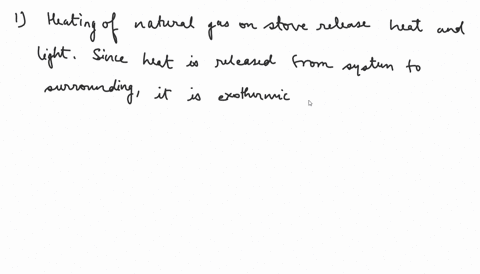 1) Heating of natural gas on stove release heat and
light. Since heat is released from system to
surrounding, it is exothermic